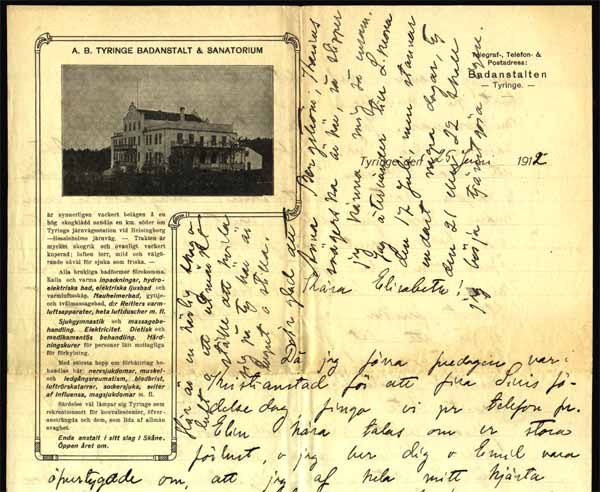 A. B. TYRINGE BADANSTALT & SANATORIUM
är synnerligen vackert belägen å en
hög skogklädd sandås en km. söder om
Tyringe järnvägsstation vid Helsingborg
—Hessleholms järnväg. — Trakten är
mycket skogrik och ovanligt vackert
kuperad; luften torr, mild och välgö-
rande såväl för sjuka som friska. —
Alla brukliga badformer förekomma.
Kalla och varma inpackningar, hydro-
elektriska bad, elektriska ljusbad och
varmluftsskåp. Nauheimerbad, gyttje-
och tvålmassagebad, dr Reitlers varm-
luftsapparater, heta luftduscher m. fl.
Sjukgymnastik och massagebe-
handling. Elektricitet. Dietisk och
medikamentös behandling. Härd-
ningskurer för personer lätt mottagliga
för förkylning.
Med största hopp om förbättring be-
handlas här: nervsjukdomar, muskel-
och ledgångsreumatism, blodbrist,
luftrörskatarrer, sockersjuka, sviter
af influensa, magsjukdomar m. fl.
Särdeles väl lämpar sig Tyringe som
rekreationsort för konvalescenter, öfver-
ansträngda och dem, som lida af allmän
svaghet.
Enda anstalt i sitt slag i Skåne.
Öppen året om.
Telegraf-, Telefon- &
Postadress:
Badanstalten
— Tyringe. —
Tyringe den 25 juni 1912
Kära Elisabeth!
Då jag förra fredagen var i
Kristianstad för att fira Sivis fö-
delsedag, fingo vi pr telefon fr.
Elin höra talas om er stora
förlust, o jag ber dig o Emil vara
öfvertygade om, att jag af hela mitt hjärta
Här är en härlig skogs-
luft o ett utmärkt
ställe att hvila
sig på
lugnt o stilla.
jag känna mig
jag återvänder till
den 17 Juli, men stannar
endast några dagar, ty
den 21 eller 22
börja tjänstgöra igen.